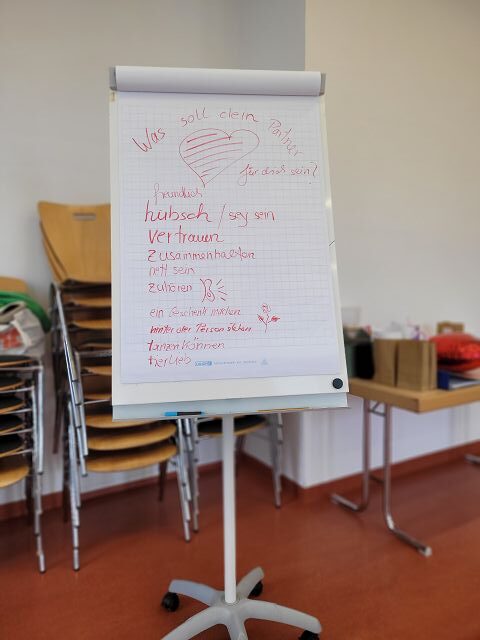 Was soll dein Partner
für dich sein?
freundlich
hübsch / sexy sein
vertrauen
zusammenhalten
nett sein
zuhören
ein Geschenk machen
hinter der Person stehen
tanzen können
tierlieb